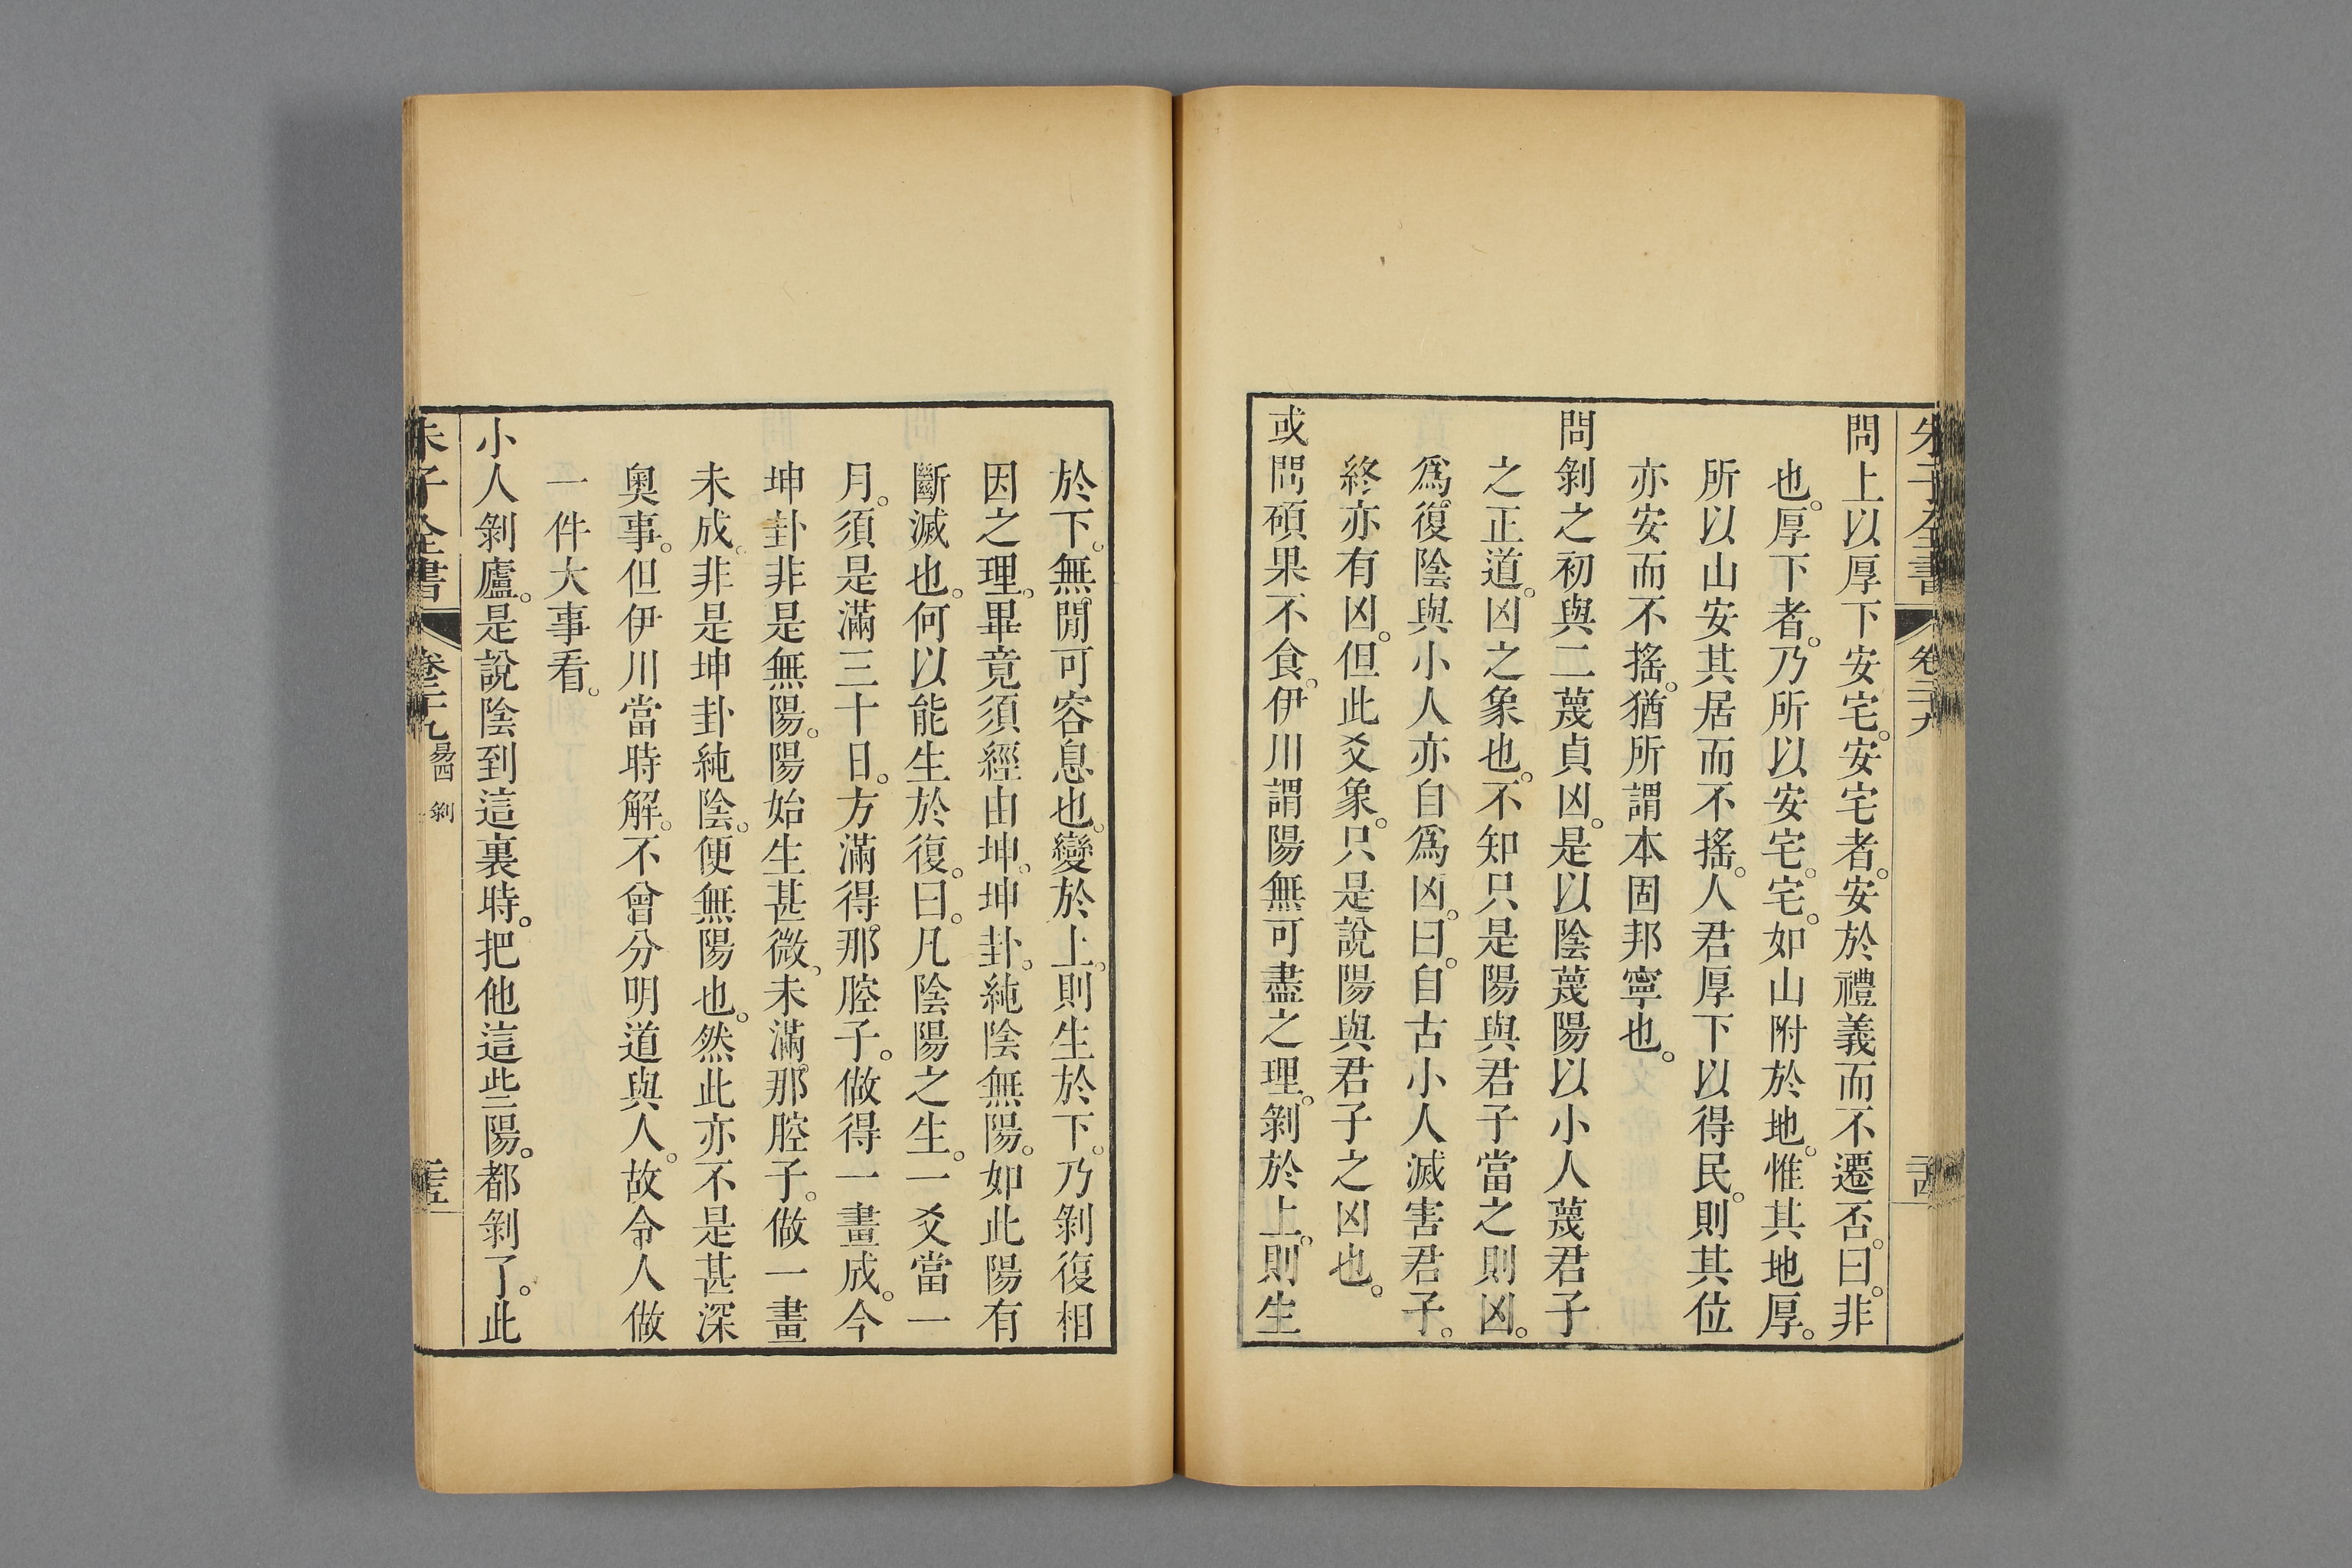 朱子全書 卷二十九 二十四
問上以厚下安宅。安宅者。安於禮義而不遷否。曰。非
也。厚下者。乃所以安宅。宅。如山附於地。惟其地厚。
所以山安其居而不搖。人君厚下以得民。則其位
亦安而不搖。猶所謂本固邦寧也。
問剝之初與二蔑貞凶。是以陰蔑陽以小人蔑君子
之正道。凶之象也。不知只是陽與君子當之則凶。
爲復陰與小人亦自爲凶。曰。自古小人滅害君子。
終亦有凶。但此爻象。只是說陽與君子之凶也。
或問碩果不食。伊川謂陽無可盡之理。剝於上。則生
於下。無閒可容息也。變於上。則生於下。乃剝復相
因之理。畢竟須經由坤。坤卦。純陰無陽。如此陽有
斷滅也。何以能生於復。曰。凡陰陽之生。一爻當一
月。須是滿三十日。方滿得那腔子。做得一畫成。今
坤卦非是無陽。陽始生甚微。未滿那腔子。做一畫
未成。非是坤卦純陰。便無陽也。然此亦不是甚深
奧事。但伊川當時解。不曾分明道與人。故令人做
一件大事看。
小人剝廬。是說陰到這裏時。把他這些陽。都剝了。此
朱子全書 卷二十九 易四 剝 二十五